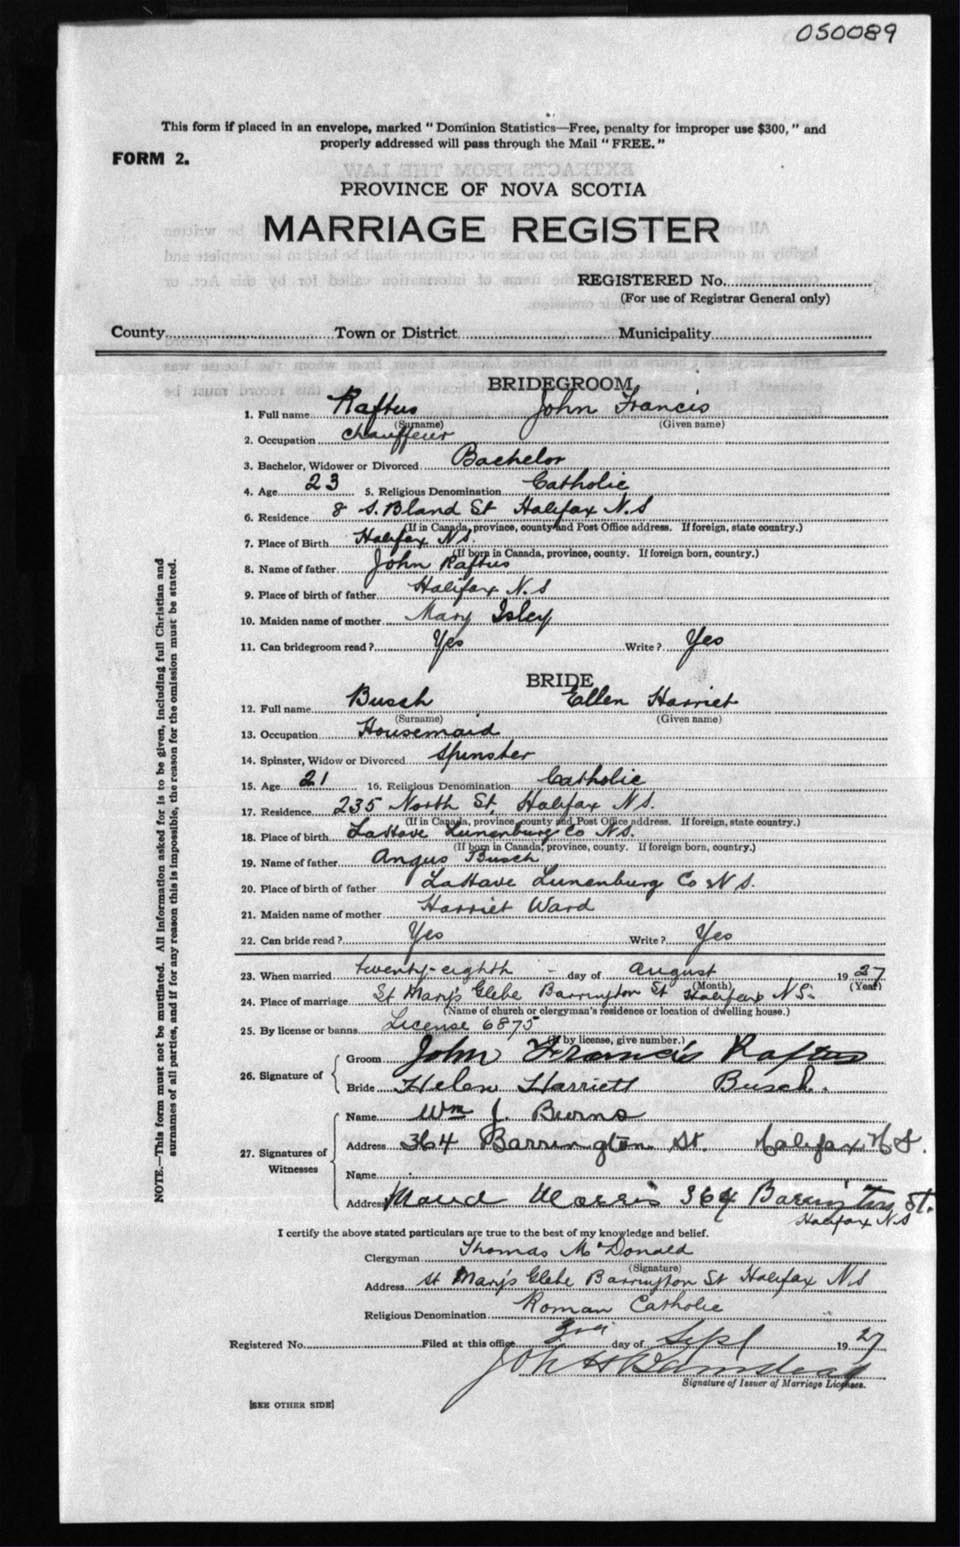 050089
This form if placed in an envelope, marked "Dominion Statistics—Free, penalty for improper use $300," and
properly addressed will pass through the Mail "FREE."
FORM 2.
PROVINCE OF NOVA SCOTIA
MARRIAGE REGISTER
REGISTERED No.
(For use of Registrar General only)
County Town or District Municipality
BRIDEGROOM
1. Full name Raftus John Francis
(Surname) (Given name)
2. Occupation chauffeur
3. Bachelor, Widower or Divorced Bachelor
4. Age 23 5. Religious Denomination Catholic
6. Residence 8 S. Bland St Halifax N.S
(If in Canada, province, county and Post Office address. If foreign, state country.)
7. Place of Birth Halifax N.S.
(If born in Canada, province, county. If foreign born, country.)
8. Name of father John Raftus
9. Place of birth of father Halifax N.S
10. Maiden name of mother Mary Isley
11. Can bridegroom read? Yes Write? Yes
BRIDE
12. Full name Busch Ellen Harriet
(Surname) (Given name)
13. Occupation Housemaid
14. Spinster, Widow or Divorced Spinster
15. Age 21 16. Religious Denomination Catholic
17. Residence 235 North St, Halifax N.S.
(If in Canada, province, county and Post Office address. If foreign, state country.)
18. Place of birth LaHave Lunenburg Co N.S.
(If born in Canada, province, county. If foreign born, country.)
19. Name of father Angus Busch
20. Place of birth of father LaHave Lunenburg Co N.S.
21. Maiden name of mother Harriet Ward
22. Can bride read? Yes Write? Yes
23. When married twenty-eighth - day of August 1927
(Month) (Year)
24. Place of marriage St Mary's Glebe Barrington St Halifax N.S.
(Name of church or clergyman's residence or location of dwelling house.)
25. By license or banns License 6875
(If by license, give number.)
26. Signature of
Groom John Francis Raftus
Bride Helen Harriett Busch.
27. Signatures of Witnesses
Name Wm J. Burns
Address 364 Barrington St. Halifax N.S.
Name
Address Maud Morris 364 Barrington St.
Halifax N.S
I certify the above stated particulars are true to the best of my knowledge and belief.
Clergyman Thomas McDonald
(Signature)
Address St Mary's Glebe Barrington St Halifax N.S
Religious Denomination Roman Catholic
Registered No. Filed at this office day of Sept 1927
Signature of Issuer of Marriage Licenses.
[SEE OTHER SIDE]
NOTE.—This form must not be mutilated. All information asked for is to be given, including full Christian and
surnames of all parties, and if for any reason this is impossible, the reason for the omission must be stated.